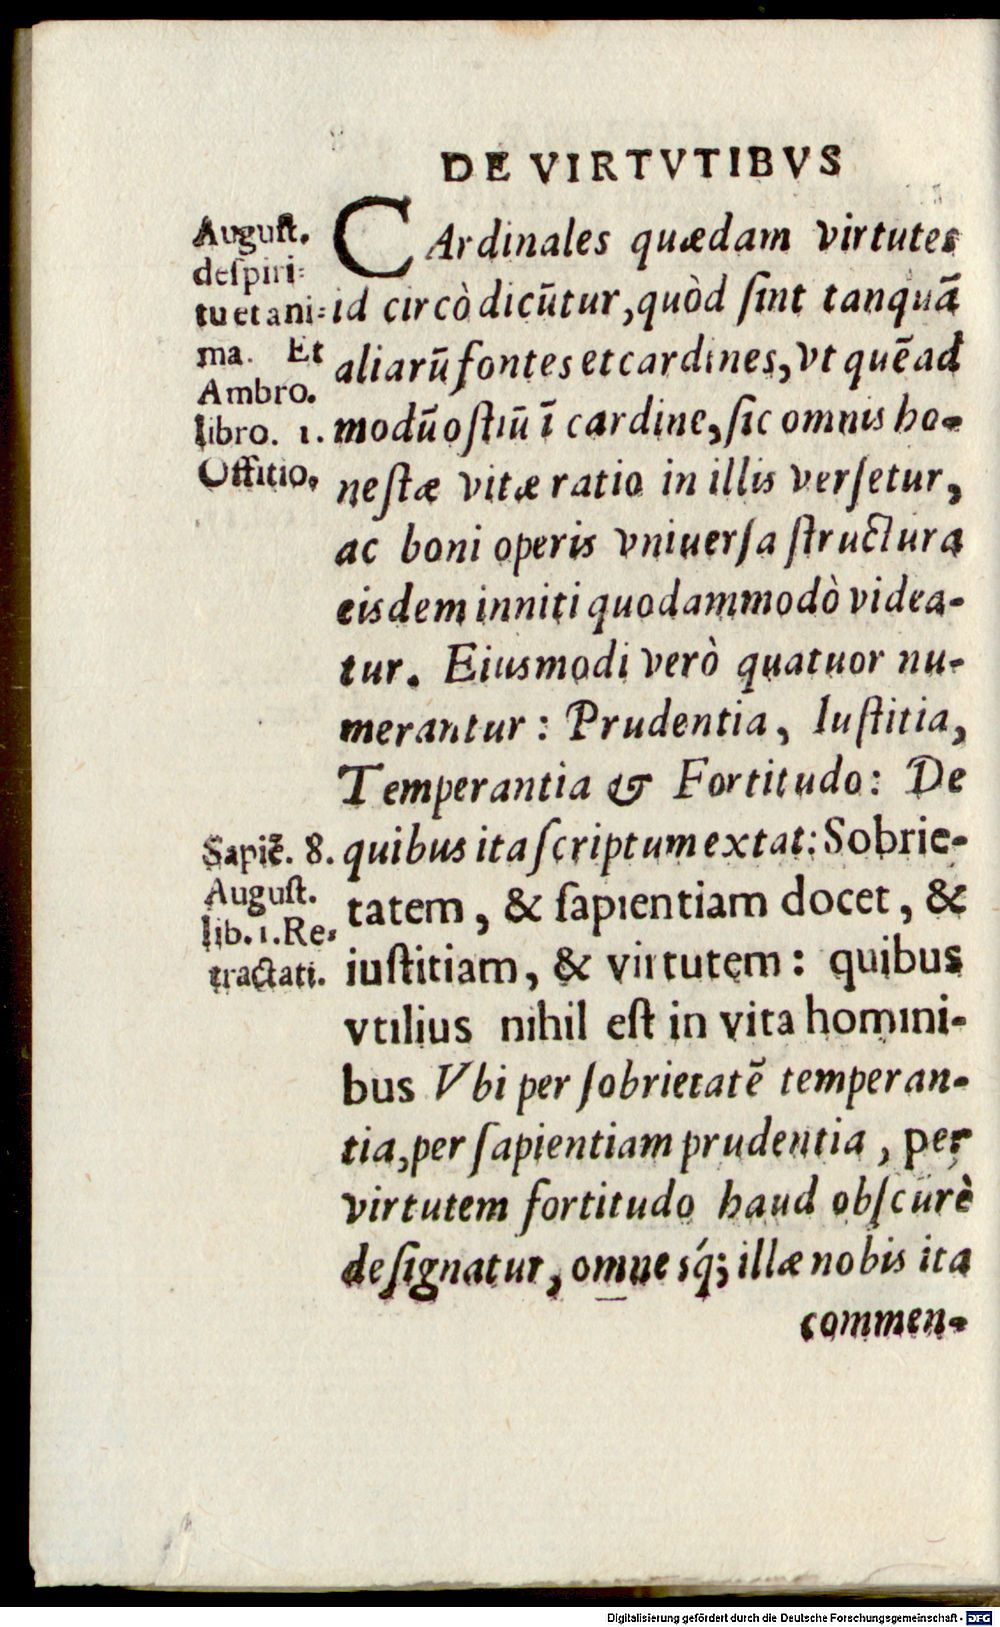 DE VIRTVTIBVS
Auguſt.
deſpiri=
tu et ani=
ma. Et
Ambro.
libro. 1.
Offitio.
CArdinales quædam virtutes
id circò dicūtur, quòd ſint tanquā
aliarū fontes et cardines, vt quēad
modū oſtiū ī cardine, ſic omnis ho-
neſtæ vitæ ratio in illis verſetur,
ac boni operis vniuerſa ſtructura
eisdem inniti quodammodò videa-
tur. Eiusmodi verò quatuor nu-
merantur: Prudentia, Iuſtitia,
Temperantia & Fortitudo: De
Sapiē. 8.
Auguſt.
lib. 1. Re=
tractati.
quibus ita ſcriptum extat: Sobrie-
tatem, & ſapientiam docet, &
iuſtitiam, & virtutem: quibus
vtilius nihil eſt in vita homini-
bus Vbi per ſobrietatē temperan-
tia, per ſapientiam prudentia, per
virtutem fortitudo haud obſcurè
deſignatur, omnesq́; illæ nobis ita
commen-
Digitalisierung gefördert durch die Deutsche Forschungsgemeinschaft - DFG